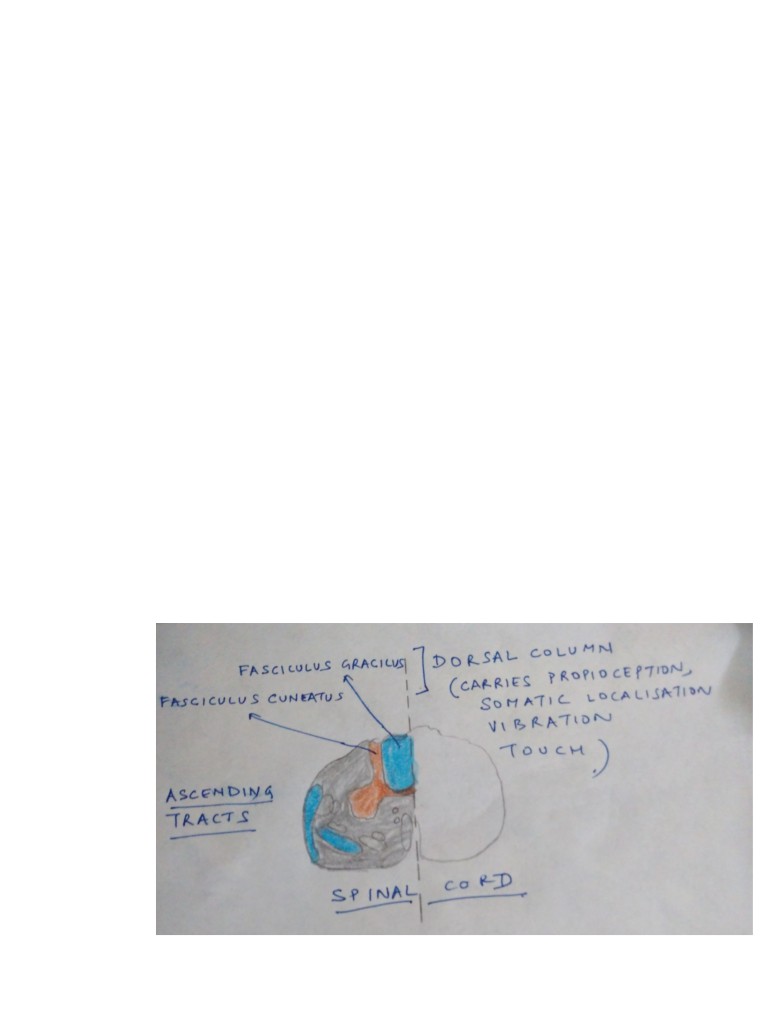 FASCICULUS GRACILUS
FASCICULUS CUNEATUS
DORSAL COLUMN
(CARRIES PROPIOCEPTION,
SOMATIC LOCALISATION
VIBRATION
TOUCH.)
ASCENDING
TRACTS
SPINAL CORD